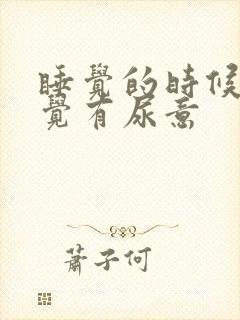 睡覺的時候
覺有尿意
蕭子何